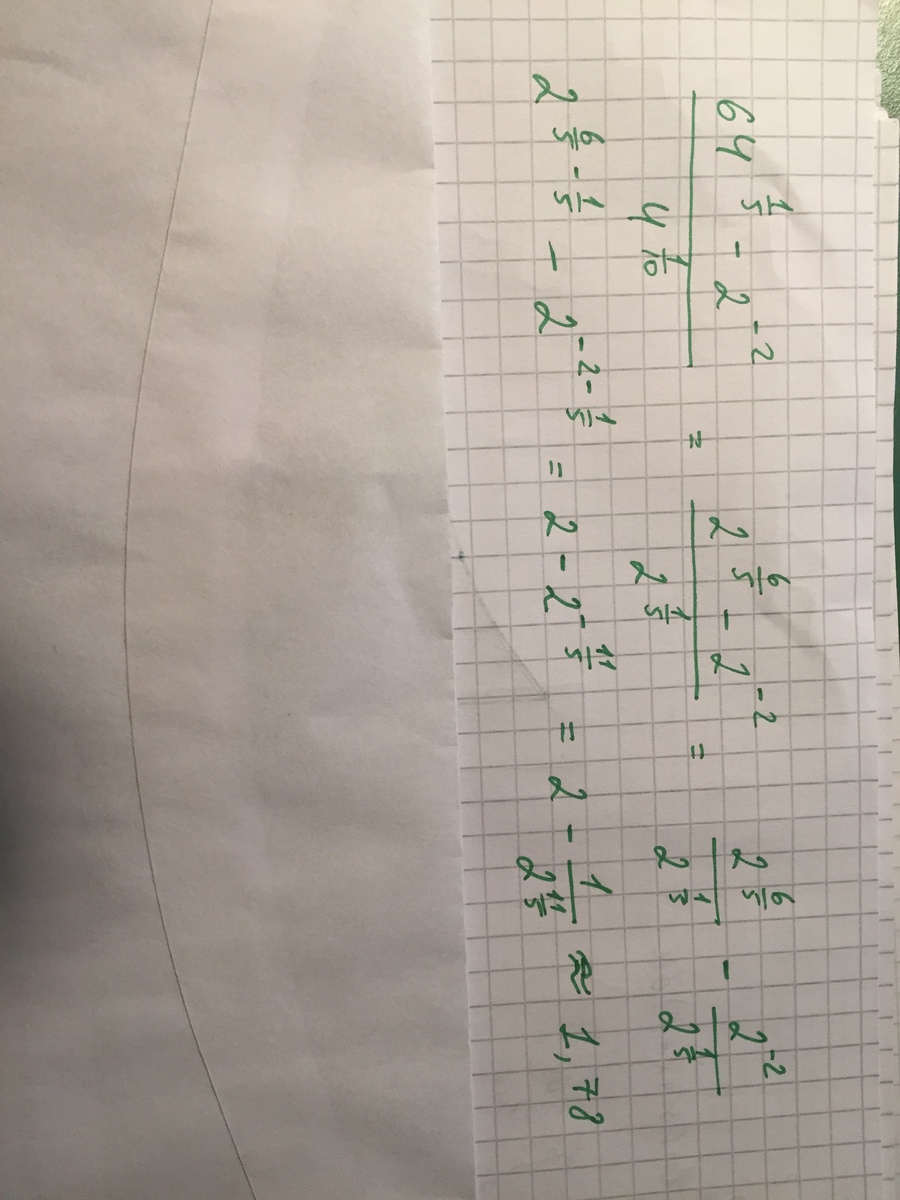 \frac{64^{\frac{1}{5}} - 2^{-2}}{4^{\frac{1}{10}}} = \frac{2^{\frac{6}{5}} - 2^{-2}}{2^{\frac{1}{5}}} = \frac{2^{\frac{6}{5}}}{2^{\frac{1}{3}}} - \frac{2^{-2}}{2^{\frac{1}{5}}}
2^{\frac{6}{5} - \frac{1}{5}} - 2^{-2 - \frac{1}{5}} = 2 - 2^{-\frac{11}{5}} = 2 - \frac{1}{2^{\frac{11}{5}}} ≈ 1,78